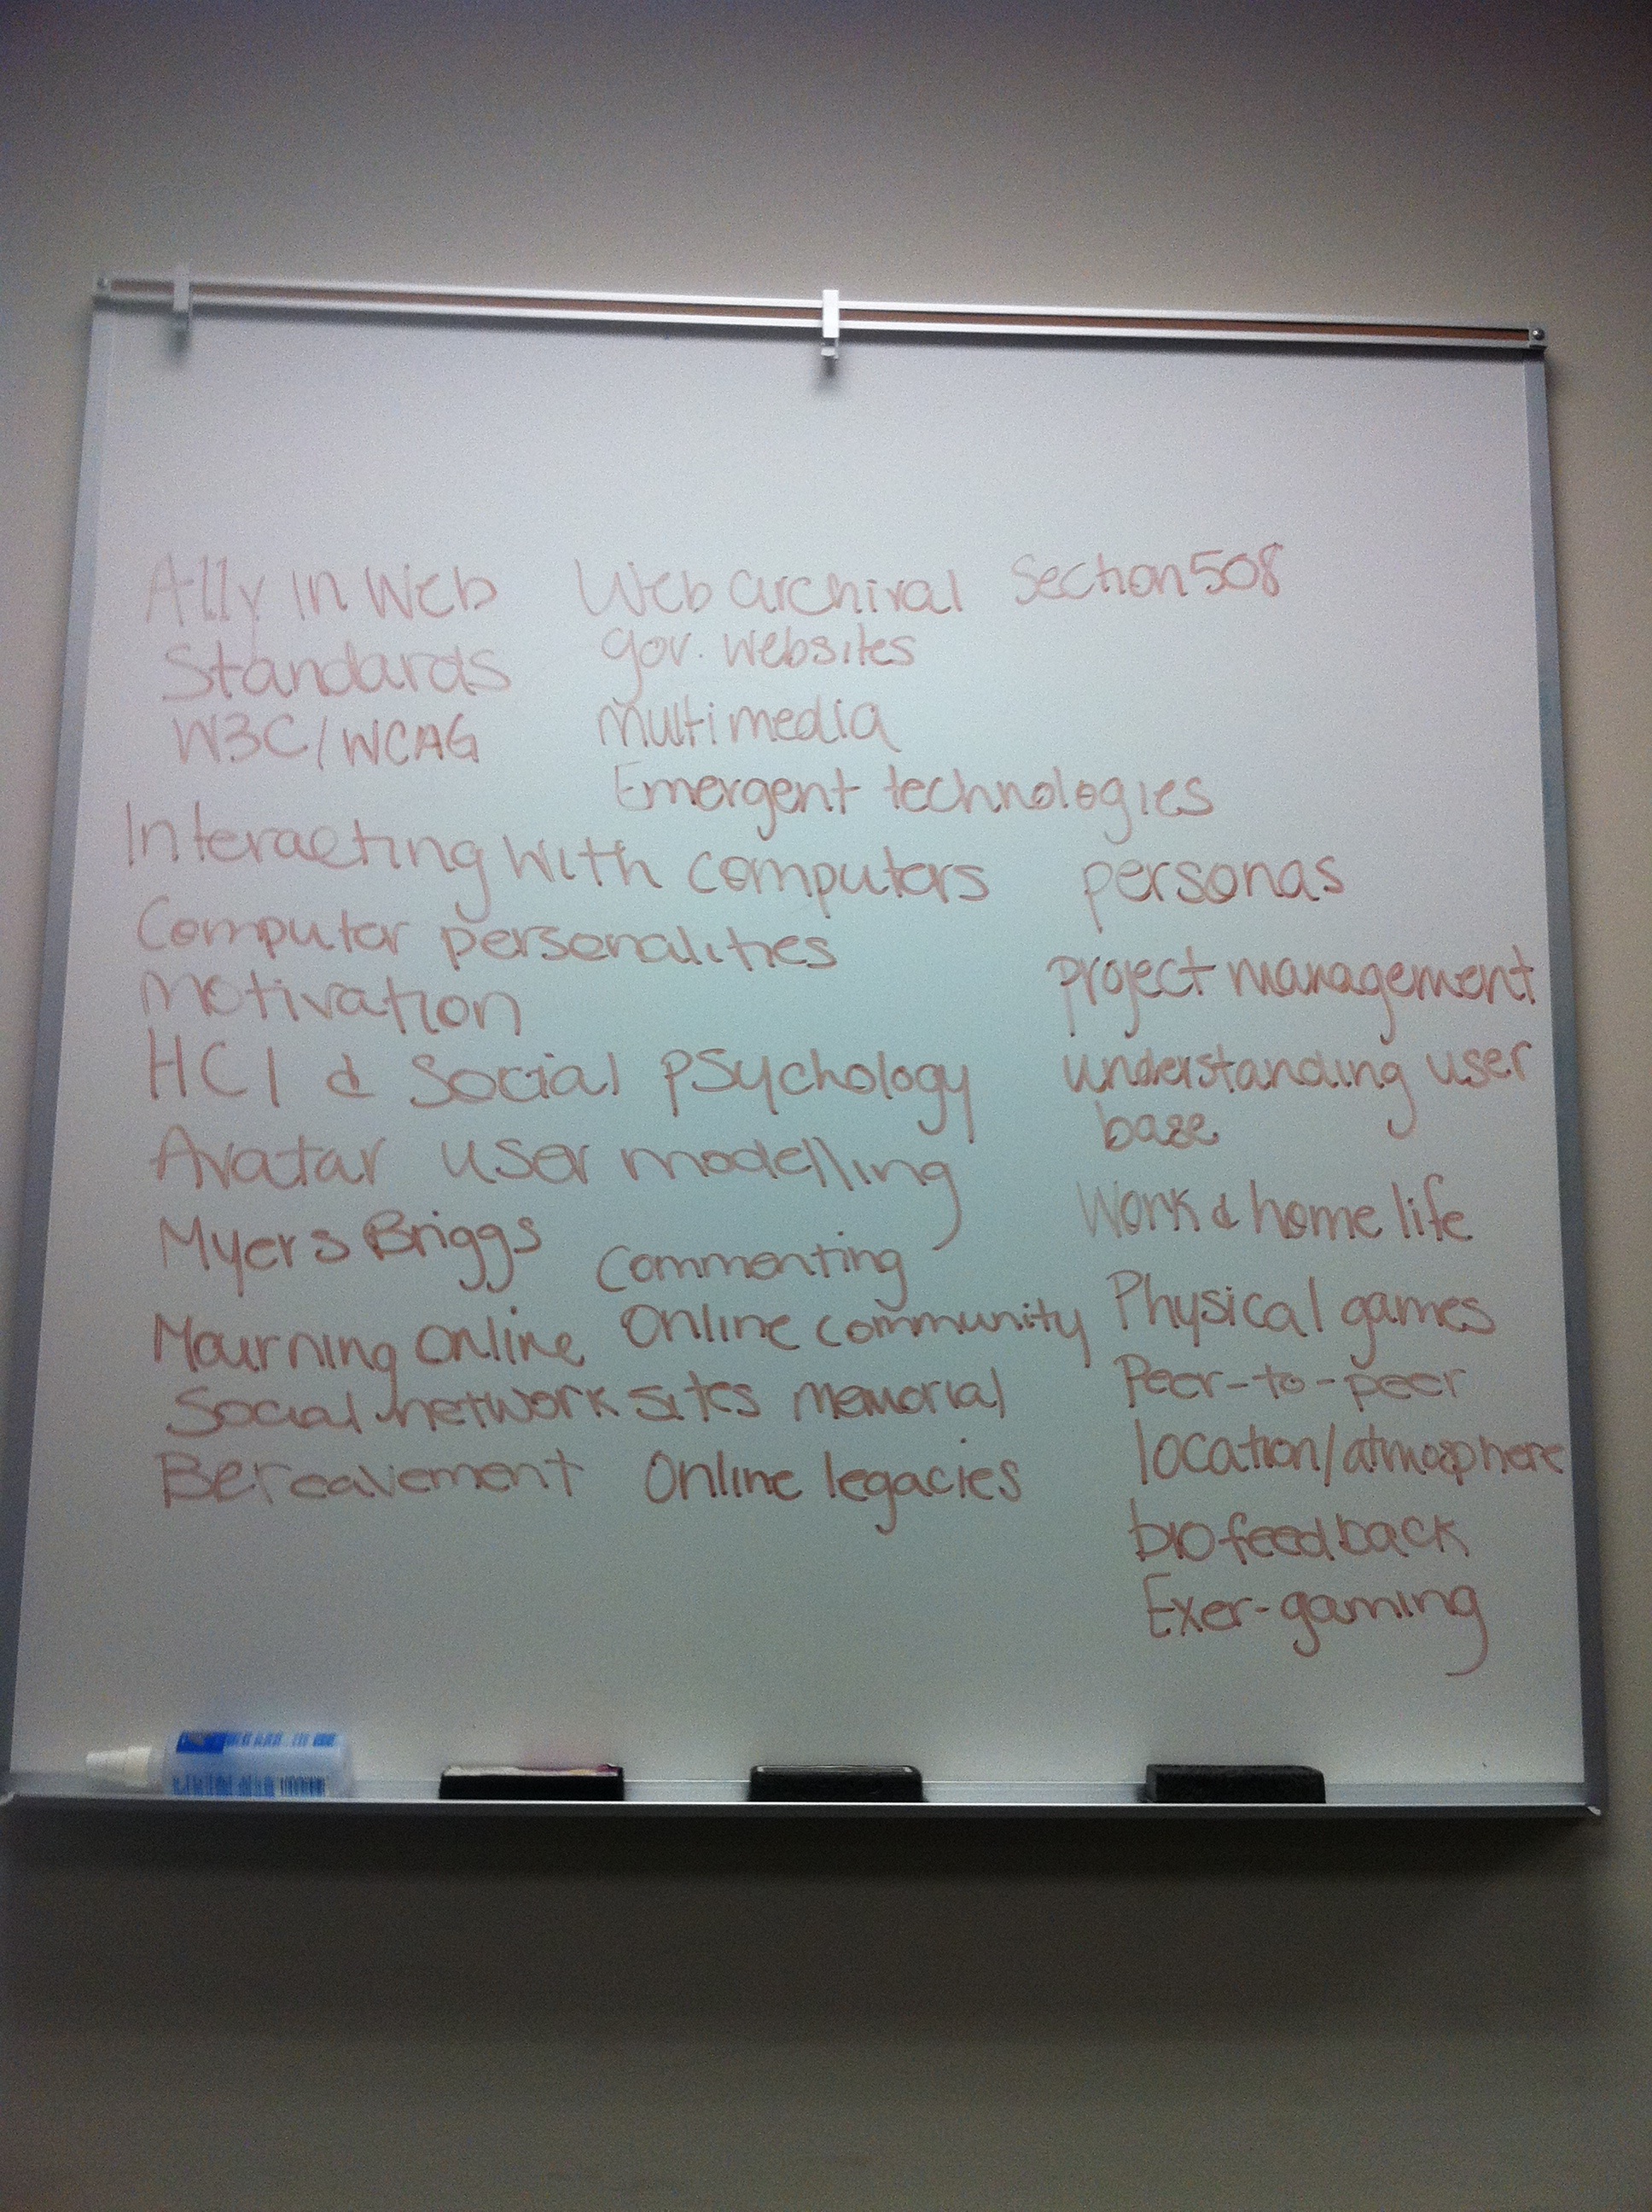 A11y in Web Standards
W3C/WCAG
Web archival
gov. websites
multimedia
Emergent technologies
Section 508
Interacting with computers
Computer personalities
motivation
HCI & Social psychology
Avatar user modelling
Myers Briggs
Commenting
Mourning Online
Online community
Social network sites
memorial
Bereavement
Online legacies
personas
project management
understanding user
base
Work & home life
Physical games
Peer-to-peer
location/atmosphere
biofeedback
Exer-gaming